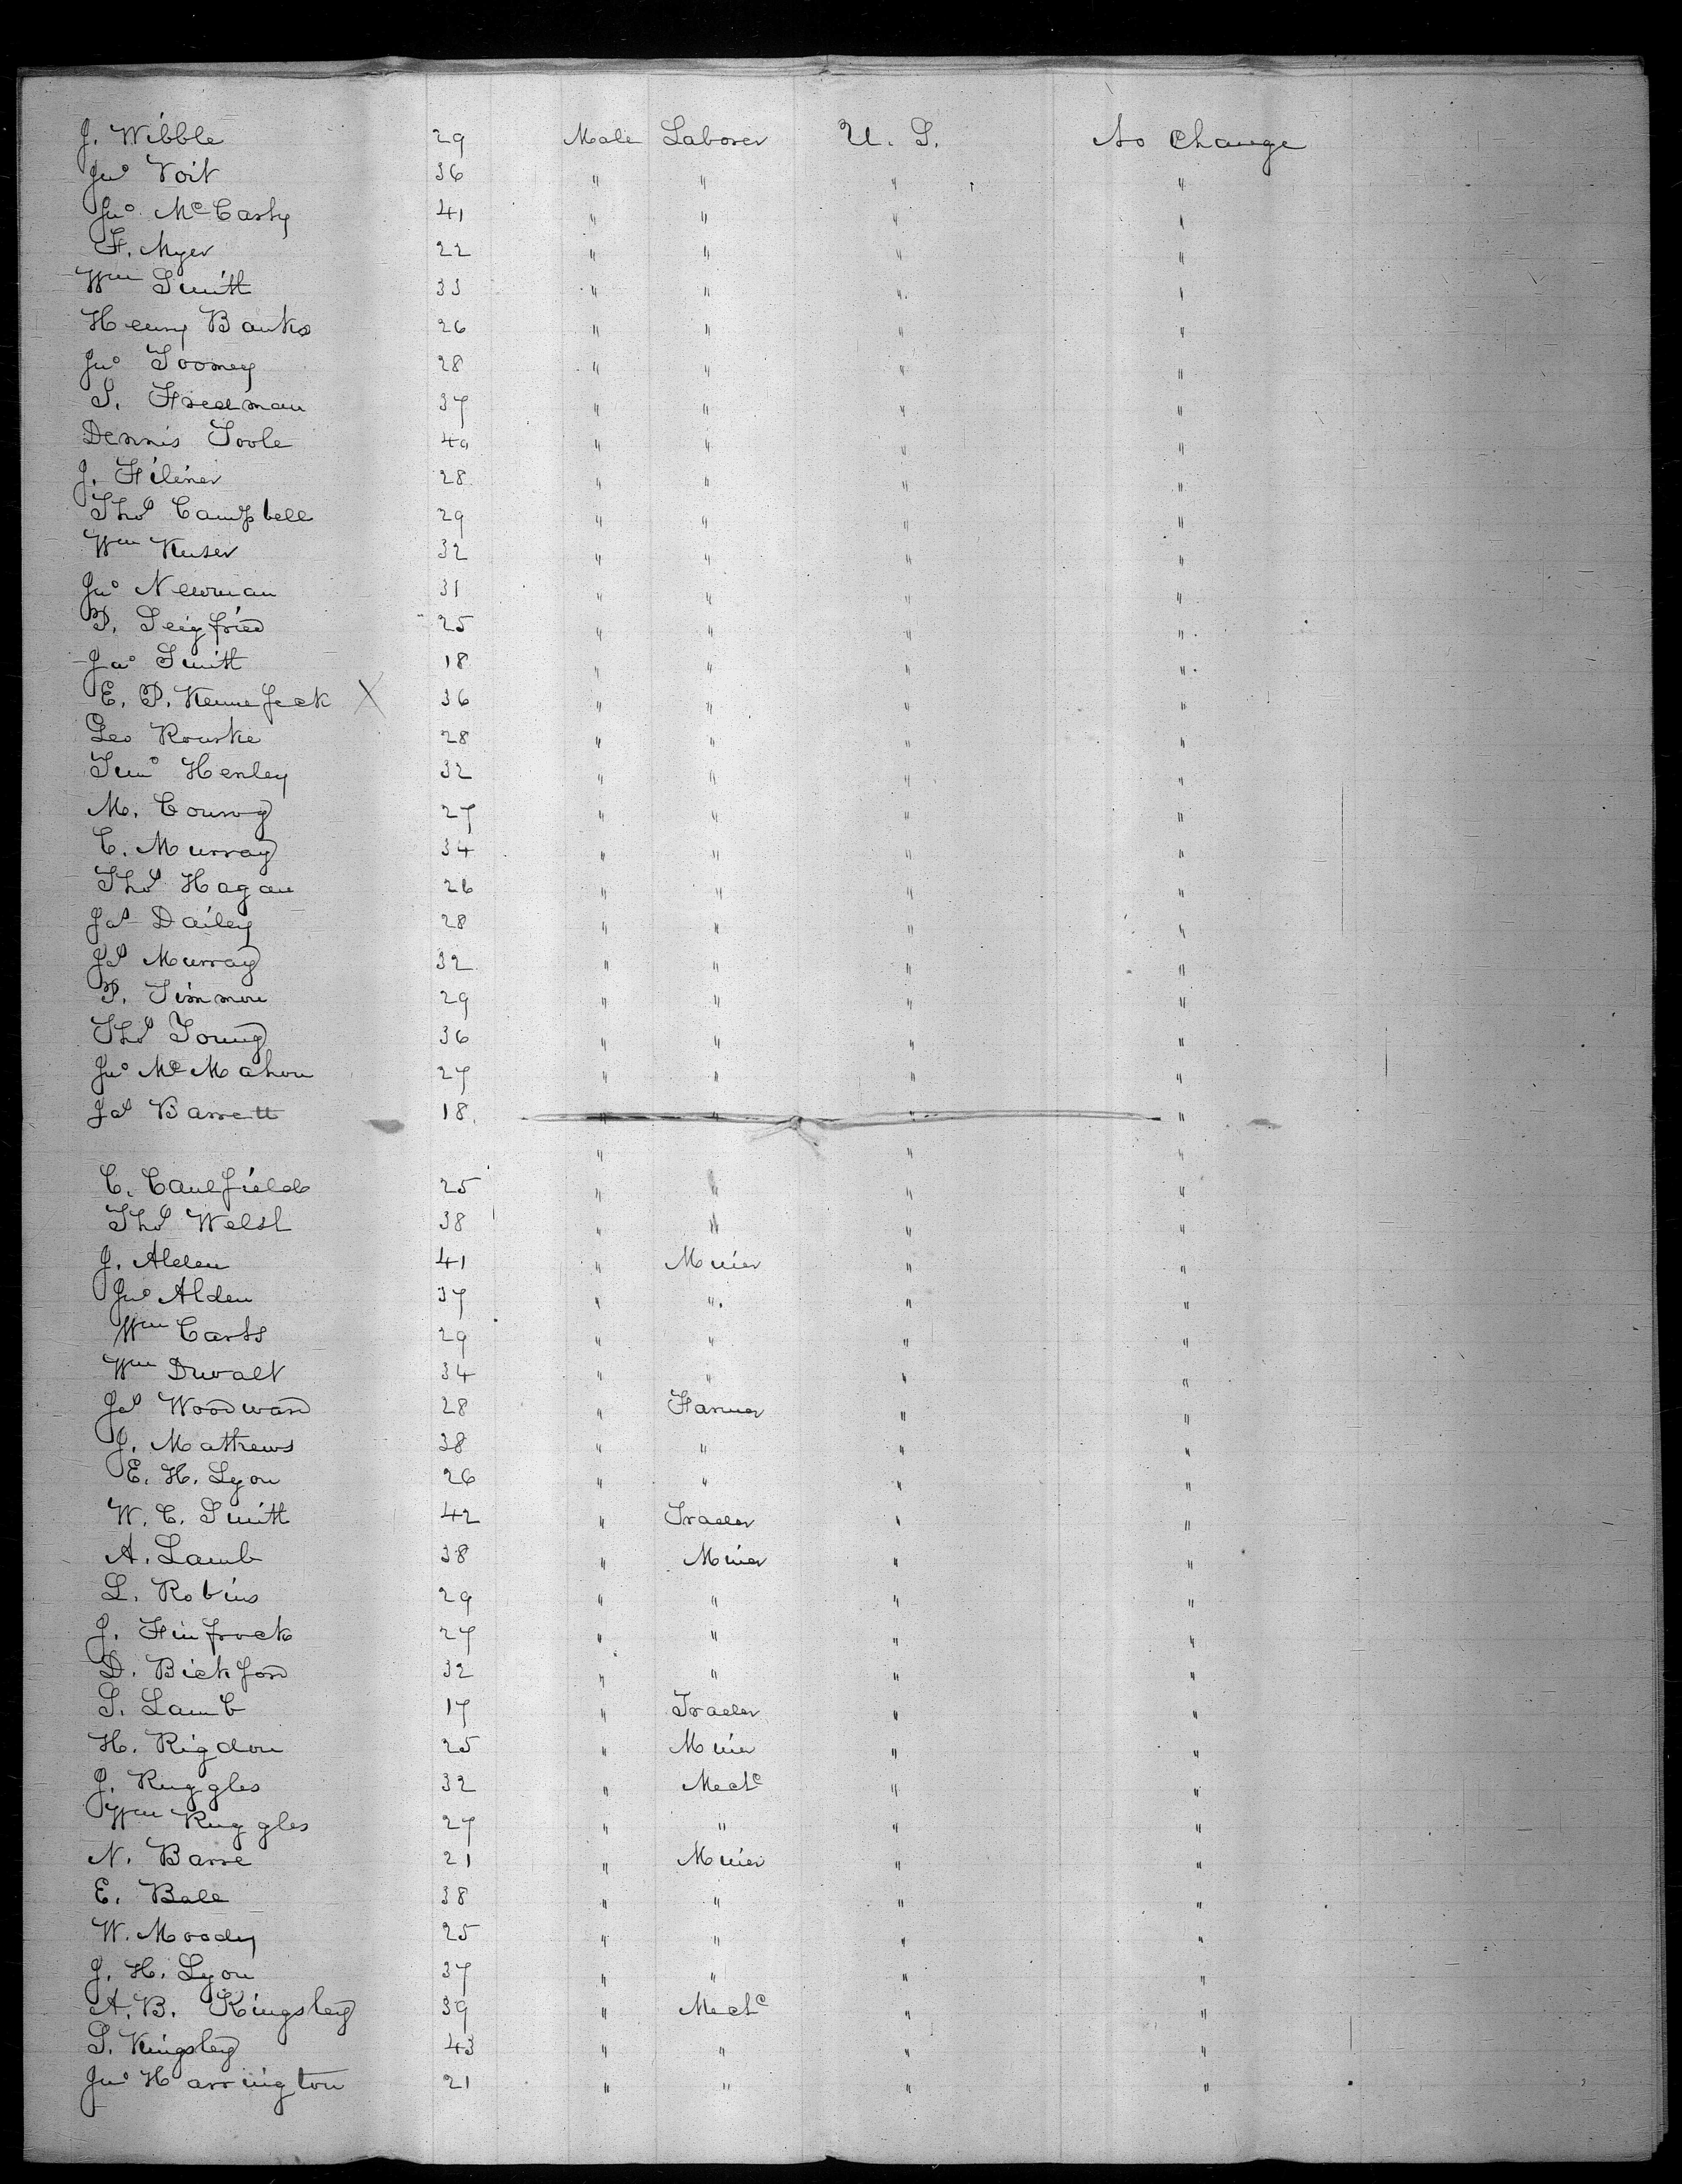 J. Wibble 29 Male Laborer U. S. No Change
Jno Voit 36 " " " "
Jno McCarty 41 " " " "
F. Myer 22 " " " "
Wm Smith 33 " " " "
Henry Banks 26 " " " "
Jno Toomey 28 " " " "
S. Freedman 37 " " " "
Dennis Toole 40 " " " "
J. Filiner 28 " " " "
Thos Campbell 29 " " " "
Wm Kuser 32 " " " "
Jno Newman 31 " " " "
P. Seigfried 25 " " " "
Jas Smith 18 " " " "
E. P. Kennefeck X 36 " " " "
Geo Rourke 28 " " " "
Timo Henley 32 " " " "
M. Conroy 27 " " " "
C. Murray 34 " " " "
Thos Hagan 26 " " " "
Jas Dailey 28 " " " "
Js Murray 32 " " " "
P. Timmon 29 " " " "
Thos Young 36 " " " "
Jno McMahon 27 " " " "
Jas Barrett 18 " " " "
" " "
C. Caulfield 25 " " " "
Thos Welsh 38 " " " "
J. Alden 41 " Miner " "
Jno Alden 37 " " " "
Wm Carts 29 " " " "
Wm Duvalt 34 " " " "
Jas Woodward 28 " Farmer " "
J. Matthews 38 " " " "
E. H. Lyon 26 " " " "
W. C. Smith 42 " Trader " "
A. Lamb 38 " Miner " "
L. Robins 29 " " " "
J. Finfrock 27 " " " "
D. Bickford 32 " " " "
S. Lamb 17 " Trader " "
H. Rigdon 25 " Miner " "
J. Ruggles 32 " Mechc " "
Wm Ruggles 27 " " " "
N. Barre 21 " Miner " "
E. Bale 38 " " " "
W. Moody 25 " " " "
J. H. Lyon 37 " " " "
A. B. Kingsley 39 " Mechc " "
S. Kingsley 43 " " " "
Jno Harrington 21 " " " "